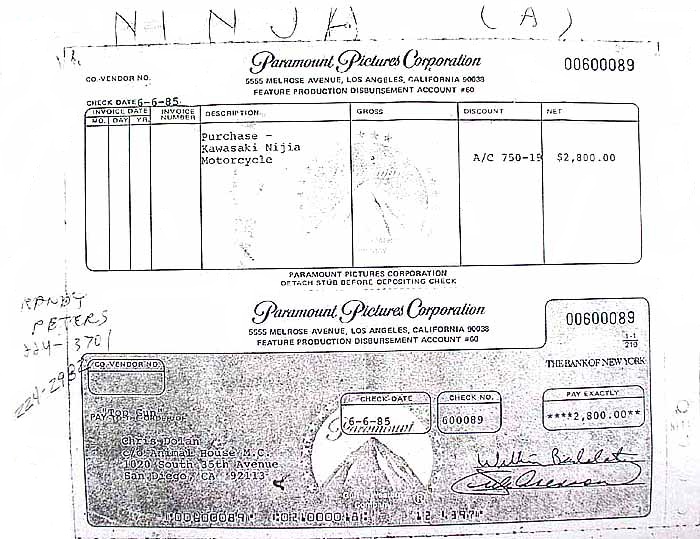 NINJA (A)
Paramount Pictures Corporation
00600089
CO-VENDOR NO.
5555 MELROSE AVENUE, LOS ANGELES, CALIFORNIA 90038
FEATURE PRODUCTION DISBURSEMENT ACCOUNT #60
CHECK DATE 6-6-85
INVOICE DATE INVOICE NUMBER DESCRIPTION GROSS DISCOUNT NET
MO. DAY YR.
Purchase -
Kawasaki Nijia
Motorcycle A/C 750-19 $2,800.00
PARAMOUNT PICTURES CORPORATION
DETACH STUB BEFORE DEPOSITING CHECK
RANDY
PETERS
224-3701
Paramount Pictures Corporation
00600089
5555 MELROSE AVENUE, LOS ANGELES, CALIFORNIA 90038
FEATURE PRODUCTION DISBURSEMENT ACCOUNT #60
1-1
210
THE BANK OF NEW YORK
CO-VENDOR NO.
CHECK DATE CHECK NO. PAY EXACTLY
6-6-85 600089 ****2,800.00**
"Top Gun"
PAY TO THE ORDER OF
Paramount
Chris Dolan
c/o Animal House M.C.
1020 South 35th Avenue
San Diego, CA 92113